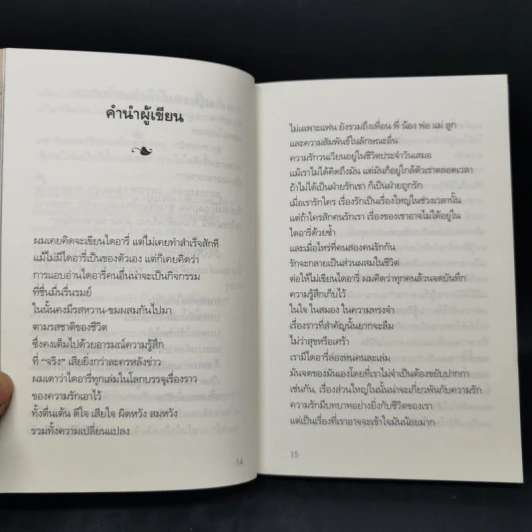 คำนำผู้เขียน
ผมเคยคิดจะเขียนไดอารี่ แต่ไม่เคยทำสำเร็จสักที
แม้ไม่มีไดอารี่เป็นของตัวเอง แต่ก็เคยคิดว่า
การแอบอ่านไดอารี่คนอื่นน่าจะเป็นกิจกรรม
ที่ชื่นมื่นรื่นรมย์
ในนั้นคงมีรสหวาน-ขมผสมกันไปมา
ตามรสชาติของชีวิต
ซึ่งคงเต็มไปด้วยอารมณ์ความรู้สึก
ที่ "จริง" เสียยิ่งกว่าละครหลังข่าว
ผมเดาว่าไดอารี่ทุกเล่มในโลกบรรจุเรื่องราว
ของความรักเอาไว้
ทั้งตื่นเต้น ดีใจ เสียใจ ผิดหวัง สมหวัง
รวมทั้งความเปลี่ยนแปลง
14
ไม่เฉพาะแฟน ยังรวมถึงเพื่อน พี่ น้อง พ่อ แม่ ลูก
และความสัมพันธ์ในลักษณะอื่น
ความรักวนเวียนอยู่ในชีวิตประจำวันเสมอ
แม้เราไม่ได้คิดถึงมัน แต่มันก็อยู่ใกล้ตัวเราตลอดเวลา
ถ้าไม่ได้เป็นฝ่ายรักเขา ก็เป็นฝ่ายถูกรัก
เมื่อเรารักใคร เรื่องรักเป็นเรื่องใหญ่ในช่วงเวลานั้น
แต่ถ้าใครสักคนรักเรา เรื่องของเขาอาจไม่ได้อยู่ใน
ไดอารี่ด้วยซ้ำ
และเมื่อไหร่ที่คนสองคนรักกัน
รักจะกลายเป็นส่วนผสมในชีวิต
ต่อให้ไม่เขียนไดอารี่ ผมคิดว่าทุกคนล้วนจดบันทึก
ความรู้สึกเก็บไว้
ในใจ ในสมอง ในความทรงจำ
เรื่องราวที่สำคัญนั้นยากจะลืม
ไม่ว่าสุขหรือเศร้า
เรามีไดอารี่ล่องหนคนละเล่ม
มันจดของมันเองโดยที่เราไม่จำเป็นต้องขยับปากกา
เช่นกัน, เรื่องส่วนใหญ่ในนั้นน่าจะเกี่ยวพันกับความรัก
ความรักมีบทบาทอย่างยิ่งกับชีวิตของเรา
แต่เป็นเรื่องที่เราอาจจะเข้าใจมันน้อยมาก
15